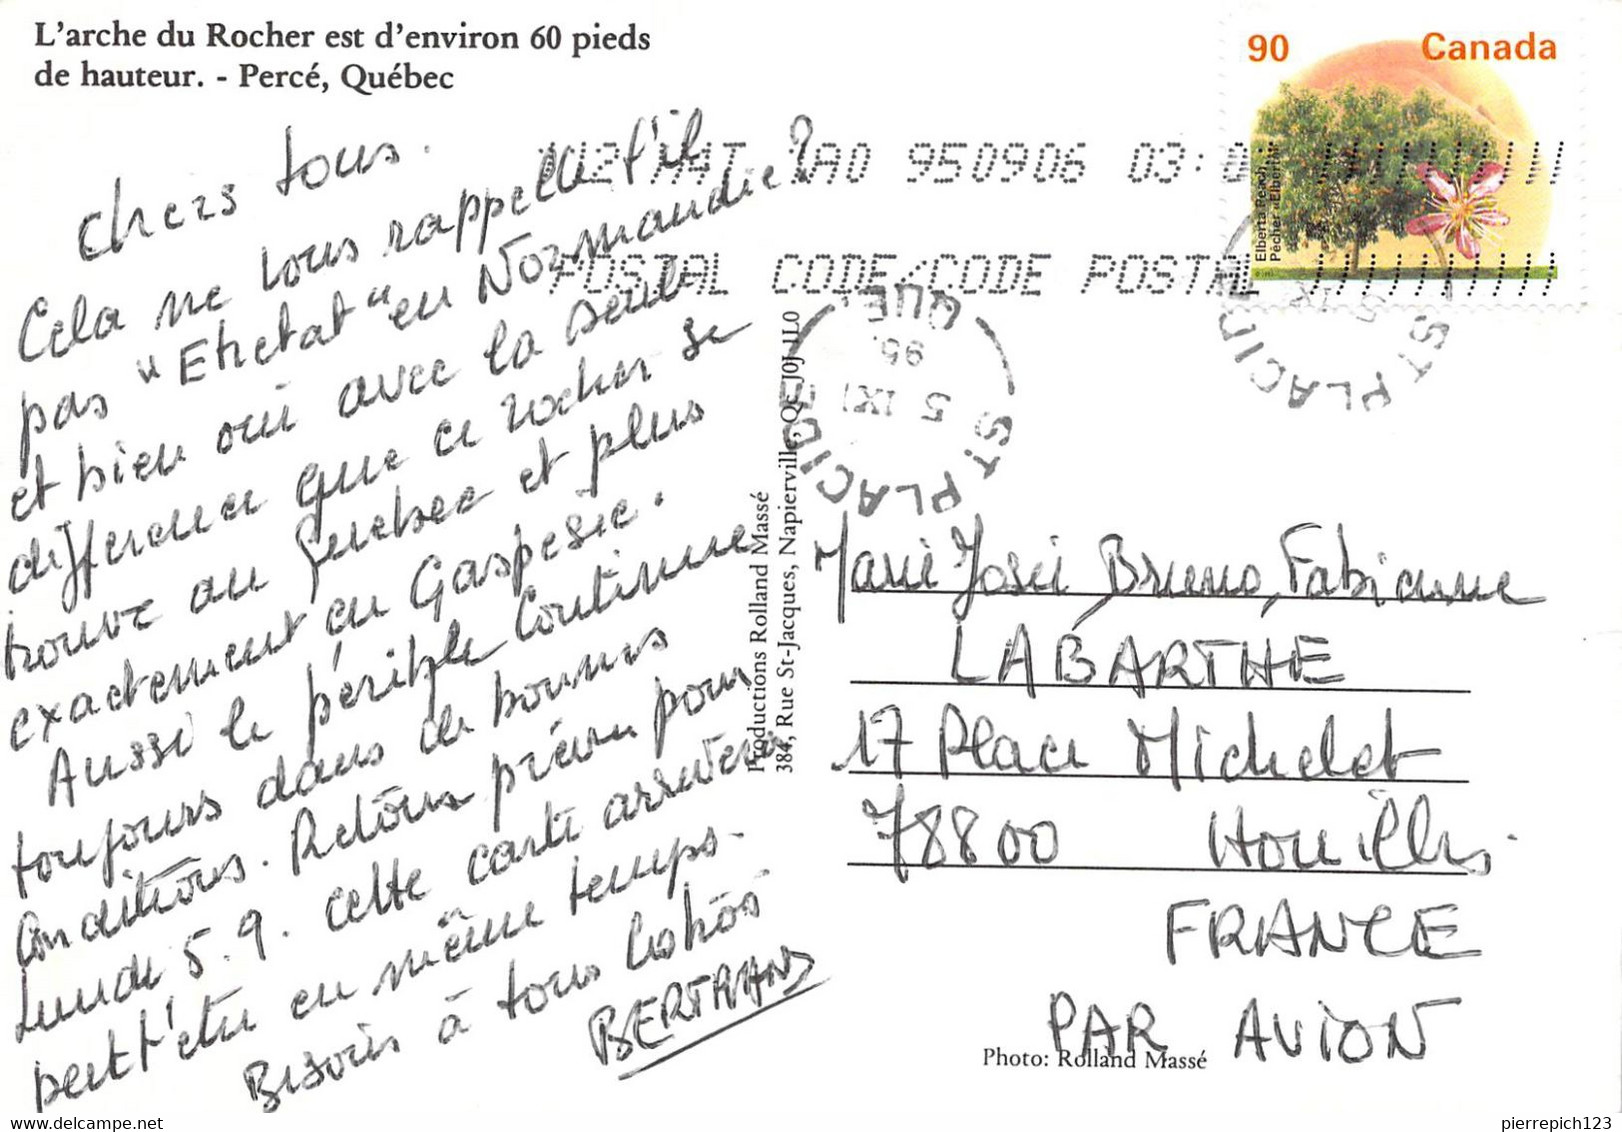 L'arche du Rocher est d'environ 60 pieds
de hauteur. - Percé, Québec
Chers tous.
Cela ne vous rappelle t'il
pas "Etretat" en Normandie?
et bien oui avec la seule
différence que ce rocher se
trouve au Quebec et plus
exactement en Gaspesie.
Aussi le périple continue
toujours dans de bonnes
conditions. Retour prévu pour
Lundi 5.9. cette carte arrivera
peut'être en même temps.
Bisous à tous
BERTRAND
Productions Rolland Massé
384, Rue St-Jacques, Napierville, QC J0J 1L0
90 Canada
Elberta Peach
Pêcher «Elberta»
950906 03:0
POSTAL CODE/CODE POSTAL
ST PLACIDE
QUE.
5 IX
95
ST PLACIDE
5 IX
Marie José, Bruno, Fabienne
LABARTHE
17 Place Michelet
78800 Houilles.
FRANCE
PAR AVION
Photo: Rolland Massé
pierrepich123